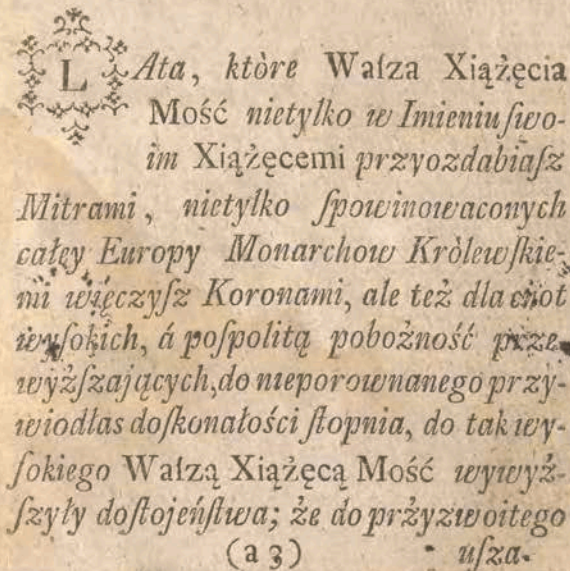 LAta, ktòre Waſza Xiążęcia
Mość nietylko w Imieniu ſwo-
im Xiążęcemi przyozdabiaſz
Mitrami, nietylko ſpowinowaconych
całey Europy Monarchow Kròlewſkie-
mi więczyſz Koronami, ale też dla cnot
wyſokich, á poſpolitą pobożność prze-
wyżſzających, do nieporownanego przy-
wiodłas doſkonałości ſtopnia, do tak wy-
ſokiego Waſzą Xiążęcą Mość wywyż-
ſzyły doſtojeńſtwa; że do przyzwoitego
(a3) uſza-